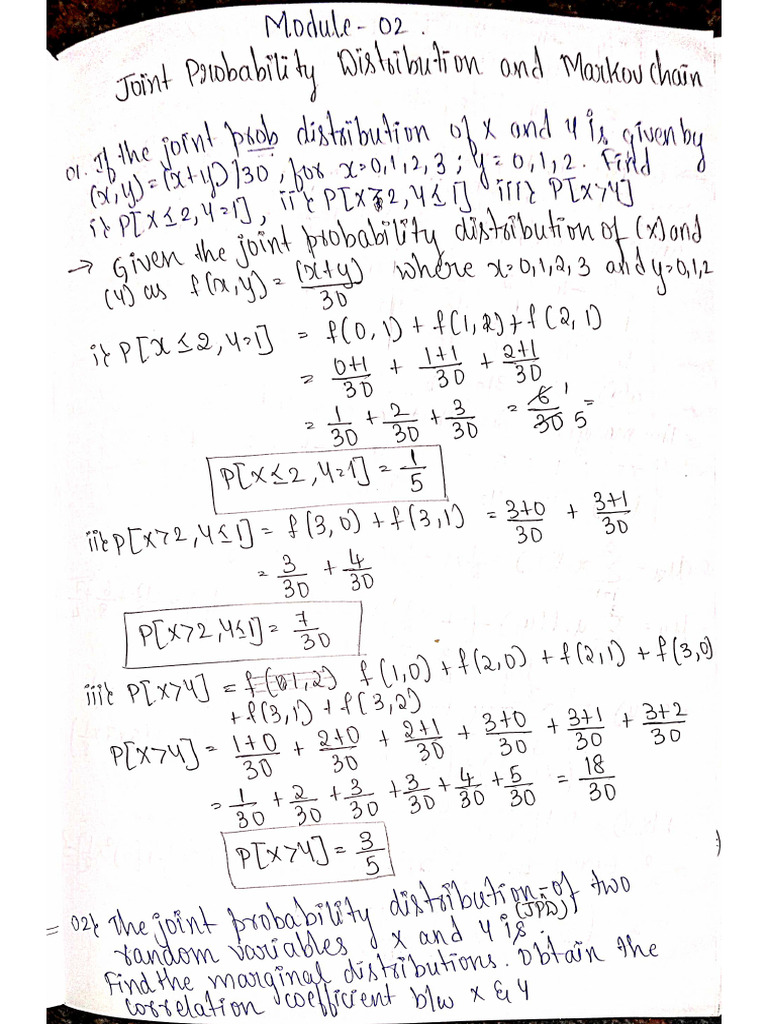 Module - 02 .
Joint Probability Distribution and Markov chain
01. If the joint prob distribution of x and y is given by
(x,y) = (x+y)/30 , for x=0,1,2,3 ; y=0,1,2. Find
i} P[x≤2, y=1] , ii} P[x>2, y≤1] iii} P[x>y]
→ Given the joint probability distribution of (x) and
(y) as f(x,y) = (x+y)/30 where x=0,1,2,3 and y=0,1,2
i} P[x≤2, y=1] = f(0,1) + f(1,2) + f(2,1)
= 0+1/30 + 1+1/30 + 2+1/30
= 1/30 + 2/30 + 3/30 = 6/30 1/5 =
P[x≤2, y=1] = 1/5
ii} P[x>2, y≤1] = f(3,0) + f(3,1) = 3+0/30 + 3+1/30
= 3/30 + 4/30
P[x>2, y≤1] = 7/30
iii} P[x>y] = f(1,0) + f(2,0) + f(2,1) + f(3,0)
+ f(3,1) + f(3,2)
P[x>y] = 1+0/30 + 2+0/30 + 2+1/30 + 3+0/30 + 3+1/30 + 3+2/30
= 1/30 + 2/30 + 3/30 + 3/30 + 4/30 + 5/30 = 18/30
P[x>y] = 3/5
= 02} The joint probability distribution of two
(JPD)
random variables x and y is .
Find the marginal distributions. Obtain the
correlation coefficient b/w x & y